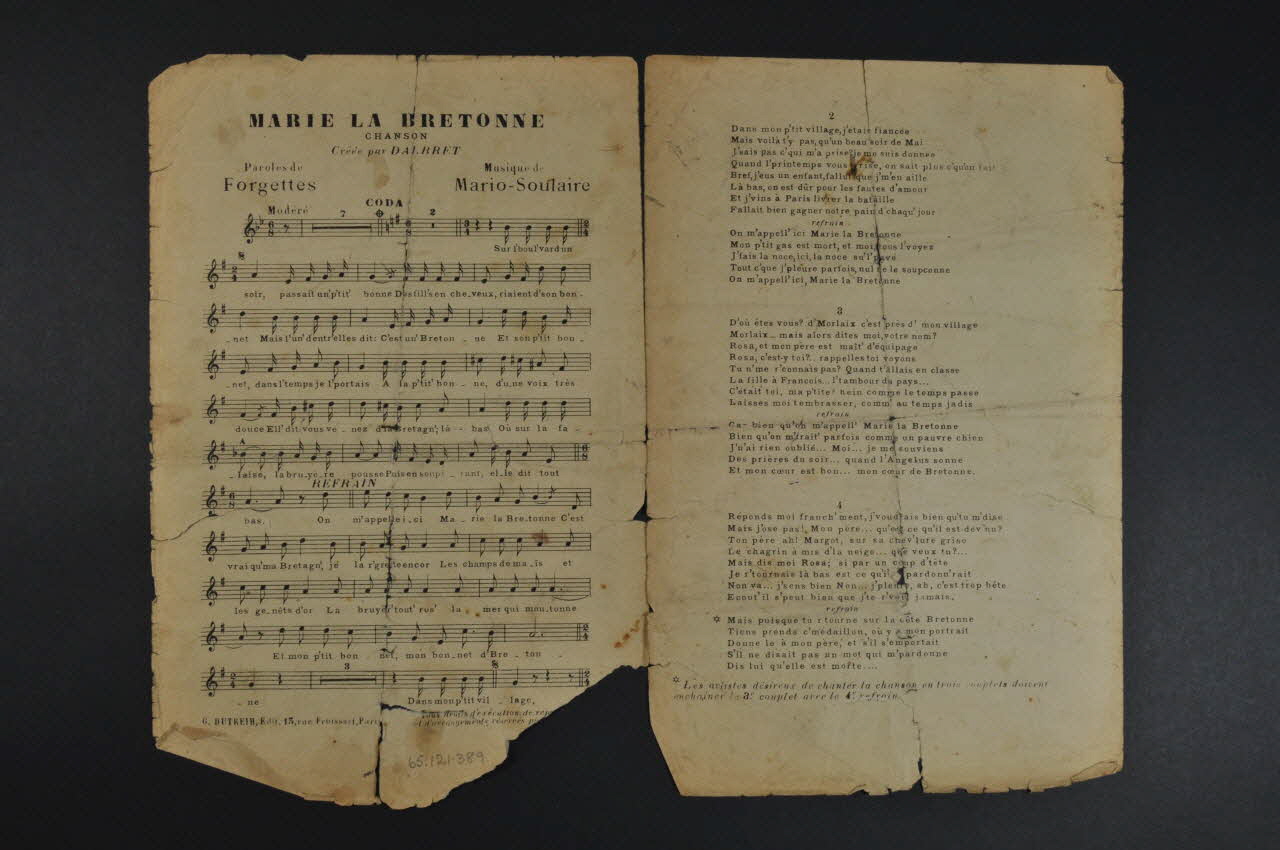 MARIE LA BRETONNE
CHANSON
Créée par DALBRET
Paroles de
Forgettes
Musique de
Mario-Soulaire
CODA
Modéré
7
2
Sur l'boul'vard un
soir, passait un'p'tit' bonne Des fill's en che_veux, riaient d'son bon_
_net Mais l'un' d'entr'elles dit: C'est un' Breton _ ne Et son p'tit bon_
_net, dans l'temps je l'portais A la p'tit' bon _ ne, d'u_ne voix très
douce Ell' dit: vous ve _ nez d'la Bretagn', là _ bas Où sur la fa_
_laise, la bru_yère pousse Puis en soupi _ rant, el_le dit tout
REFRAIN
bas. On m'appelle i_ci Ma _ rie la Bre_tonne C'est
vrai qu'ma Bretagn', je la r'grette encor Les champs de ma_ïs et
les ge_nêts d'or La bruyèr' tout' ros' la _ mer qui mou_tonne
Et mon p'tit bon _ net, mon bon_net d'Bre _ ton _
3
_ ne Dans mon p'tit vil _ lage,
G. DUTREIH, Edit. 13, rue Froissart, Paris
Tous droits d'exécution, de rep
et d'arrangements réservés p
65.121.389
2
Dans mon p'tit village, j'étais fiancée
Mais voilà t'y pas, qu'un beau soir de Mai
J'sais pas c'qui m'a prise, je me suis donnée
Quand l'printemps vous grise, on sait plus c'qu'on fait
Bref, j'eus un enfant, fallut que j'm'en aille
Là bas, on est dûr pour les fautes d'amour
Et j'vins à Paris livrer la bataille
Fallait bien gagner notre pain d'chaqu' jour
refrain
On m'appell' ici Marie la Bretonne
Mon p'tit gas est mort, et moi, vous l'voyez
J'fais la noce, ici, la noce su'l'pavé
Tout c'que j'pleure parfois, nul ne le soupçonne
On m'appell' ici, Marie la Bretonne
3
D'où êtes vous? d'Morlaix c'est près d' mon village
Morlaix... mais alors dites moi, votre nom?
Rosa, et mon père est maît' d'équipage
Rosa, c'est-y toi?.. rappelles toi voyons
Tu n'me r'connais pas? Quand t'allais en classe
La fille à François... l'tambour du pays...
C'était toi, ma p'tite? hein comme le temps passe
Laisses moi t'embrasser, comm' au temps jadis
refrain
Ca- bien qu'on m'appell' Marie la Bretonne
Bien qu'on m'trait' parfois comme un pauvre chien
J'n'ai rien oublié... Moi... je me souviens
Des prières du soir... quand l'Angélus sonne
Et mon cœur est bon... mon cœur de Bretonne.
4
Réponds moi franch'ment, j'voudrais bien qu'tu m'dise
Mais j'ose pas! Mon père... qu'est ce qu'il est dev'nu?
Ton père ah! Margot, sur sa chev'lure grise
Le chagrin à mis d'la neige... que veux tu?...
Mais dis moi Rosa; si par un coup d'tête
Je r'tournais là bas est ce qu'il pardonn'rait
Non va... j'sens bien Non... j'pleure, ah, c'est trop bête
Ecout' il s'peut bien que j'te r'voie jamais.
refrain
✡ Mais puisque tu r'tourne sur la côte Bretonne
Tiens prends c'médaillon, où y a mon portrait
Donne le à mon père, et s'il s'emportait
S'il ne disait pas un mot qui m'pardonne
Dis lui qu'elle est morte....
✡ Les artistes désireux de chanter la chanson en trois couplets doivent
enchaîner le 3e couplet avec le 4e refrain.